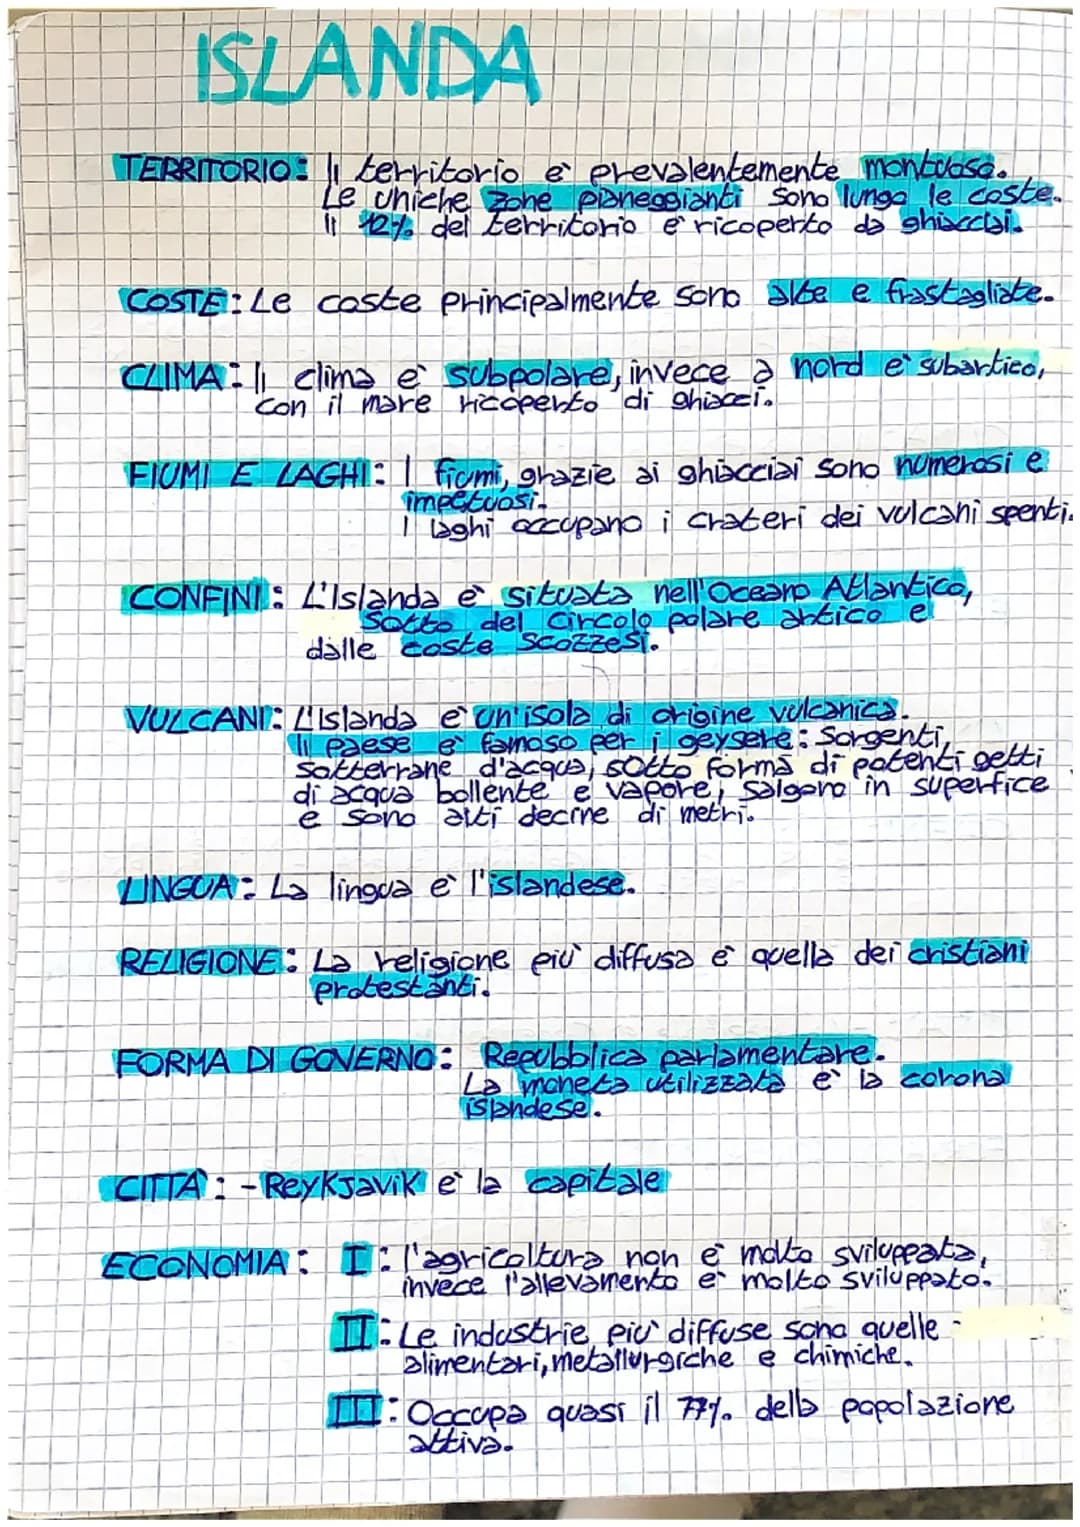 ISLANDA
TERRITORIO: Il territorio è prevalentemente montuoso.
Le uniche zone pianeggianti sono lungo le coste.
Il 12% del territorio è ricoperto da ghiacciai.
COSTE: Le coste principalmente sono alte e frastagliate.
CLIMA: Il clima è subpolare, invece a nord è subartico,
con il mare ricoperto di ghiacci.
FIUMI E LAGHI: I fiumi, grazie ai ghiacciai sono numerosi e
impetuosi.
I laghi occupano i crateri dei vulcani spenti.
CONFINI: L'Islanda è situata nell'Oceano Atlantico,
sotto del Circolo polare artico e
dalle coste scozzesi.
VULCANI: L'Islanda è un'isola di origine vulcanica.
Il paese è famoso per i geysere: Sorgenti
sotterrane d'acqua, sotto forma di potenti getti
di acqua bollente e vapore, salgono in superfice
e sono alti decine di metri.
LINGUA: La lingua è l'islandese.
RELIGIONE: La religione più diffusa è quella dei cristiani
protestanti.
FORMA DI GOVERNO: Repubblica parlamentare.
La moneta utilizzata è la corona
islandese.
CITTÀ: - Reykjavik è la capitale
ECONOMIA: I: l'agricoltura non è molto sviluppata,
invece l'allevamento è molto sviluppato.
II: Le industrie più diffuse sono quelle
alimentari, metallurgiche e chimiche.
III: Occupa quasi il 77% della popolazione
attiva.